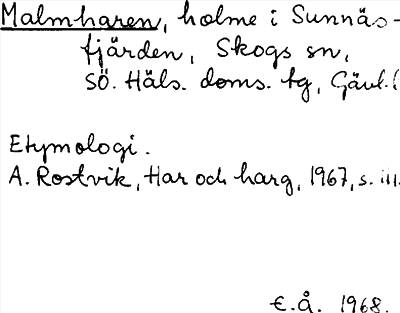 Malmharen, holme i Sunnäs-
fjärden, Skogs sn,
SÖ. Häls. doms. tg, Gävl.l
Etymologi.
A. Rostvik, Har och harg, 1967, s. 111.
E.Å. 1968.